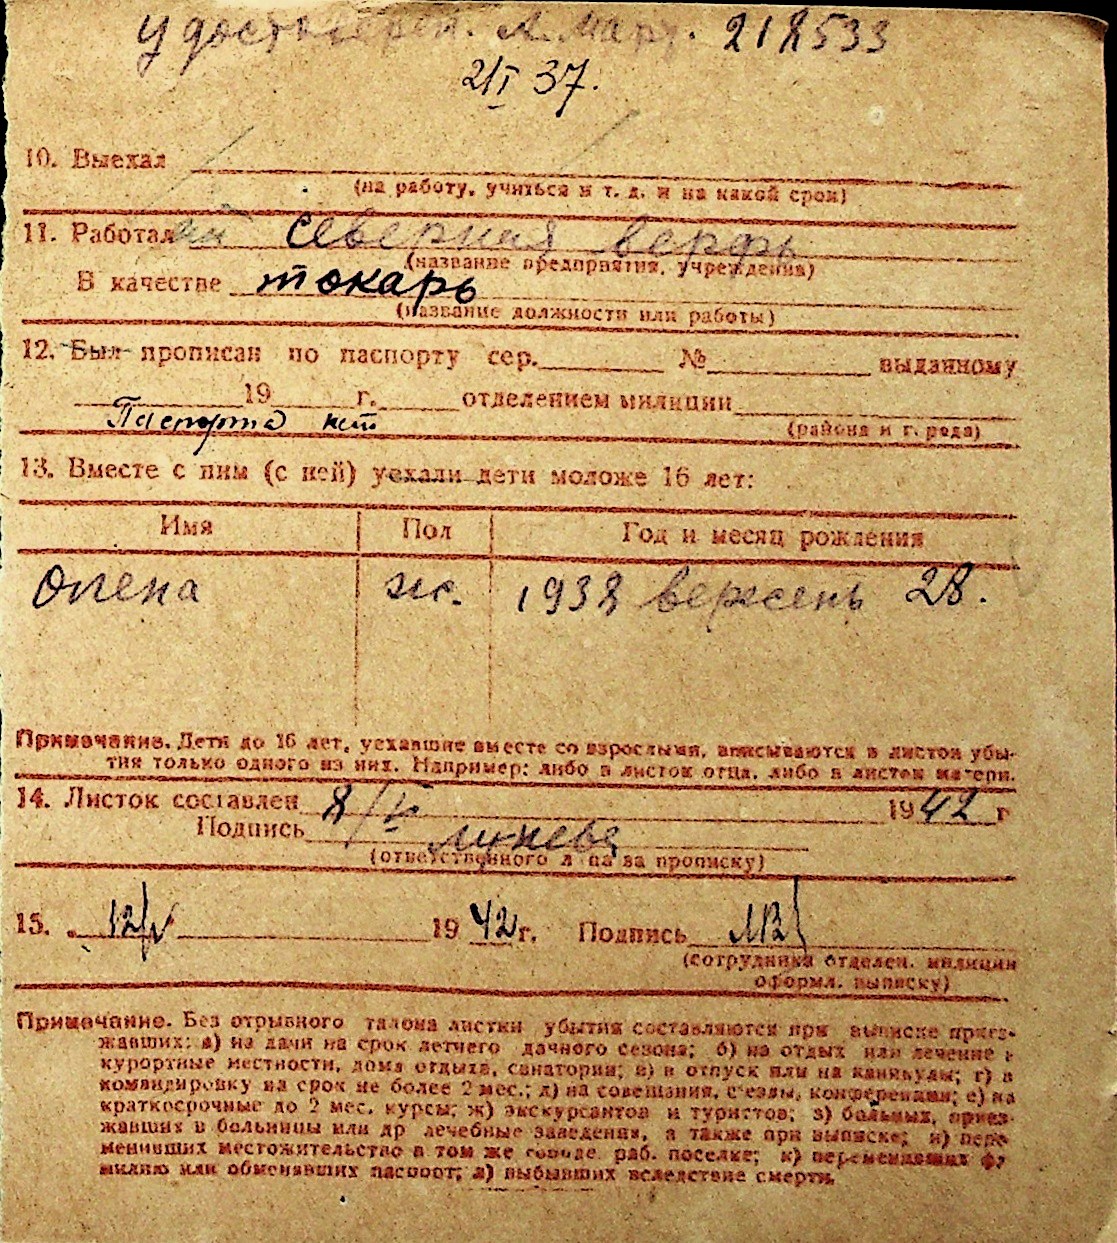 удостоверен. 218533
2/I 37.
10. Выехал
(на работу, учиться и т. д. и на какой срок)
11. Работал северная верфь
(название предприятия, учреждения)
В качестве токарь
(название должности или работы)
12. Был прописан по паспорту сер. № выданному
19 г. отделением милиции
Паспорта нет
(района и города)
13. Вместе с ним (с ней) уехали дети моложе 16 лет:
Имя Пол Год и месяц рождения
Олена ж. 1938 вересень 28.
Примечание. Дети до 16 лет, уехавшие вместе со взрослыми, вписываются в листок убы-
тия только одного из них. Например: либо в листок отца, либо в листок матери.
14. Листок составлен 1942 г
Подпись
(ответственного лица за прописку)
15. 12/V 1942 г. Подпись
(сотрудника отделен. милиции
оформл. выписку)
Примечание. Без отрывного талона листки убытия составляются при выписке приез-
жавших: а) на дачи на срок летнего дачного сезона; б) на отдых или лечение в
курортные местности, дома отдыха, санатории; в) в отпуск или на каникулы; г) в
командировку на срок не более 2 мес.; д) на совещания, с'езды, конференции; е) на
краткосрочные до 2 мес. курсы; ж) экскурсантов и туристов; з) больных, приез-
жавших в больницы или др лечебные заведения, а также при выписке; и) пере-
менивших местожительство в том же городе, раб. поселке; к) переменивших фа-
милию или обменявших паспорт; л) выбывших вследствие смерти.